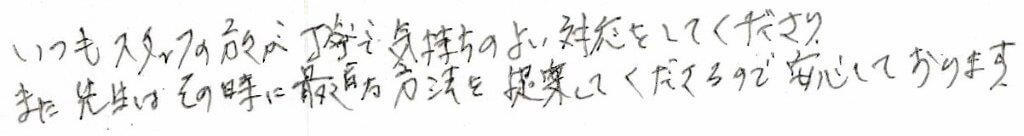 いつもスタッフの方々が丁寧で気持ちのよい対応をしてくださり
また先生はその時に最良な方法を提案してくださるので安心しております